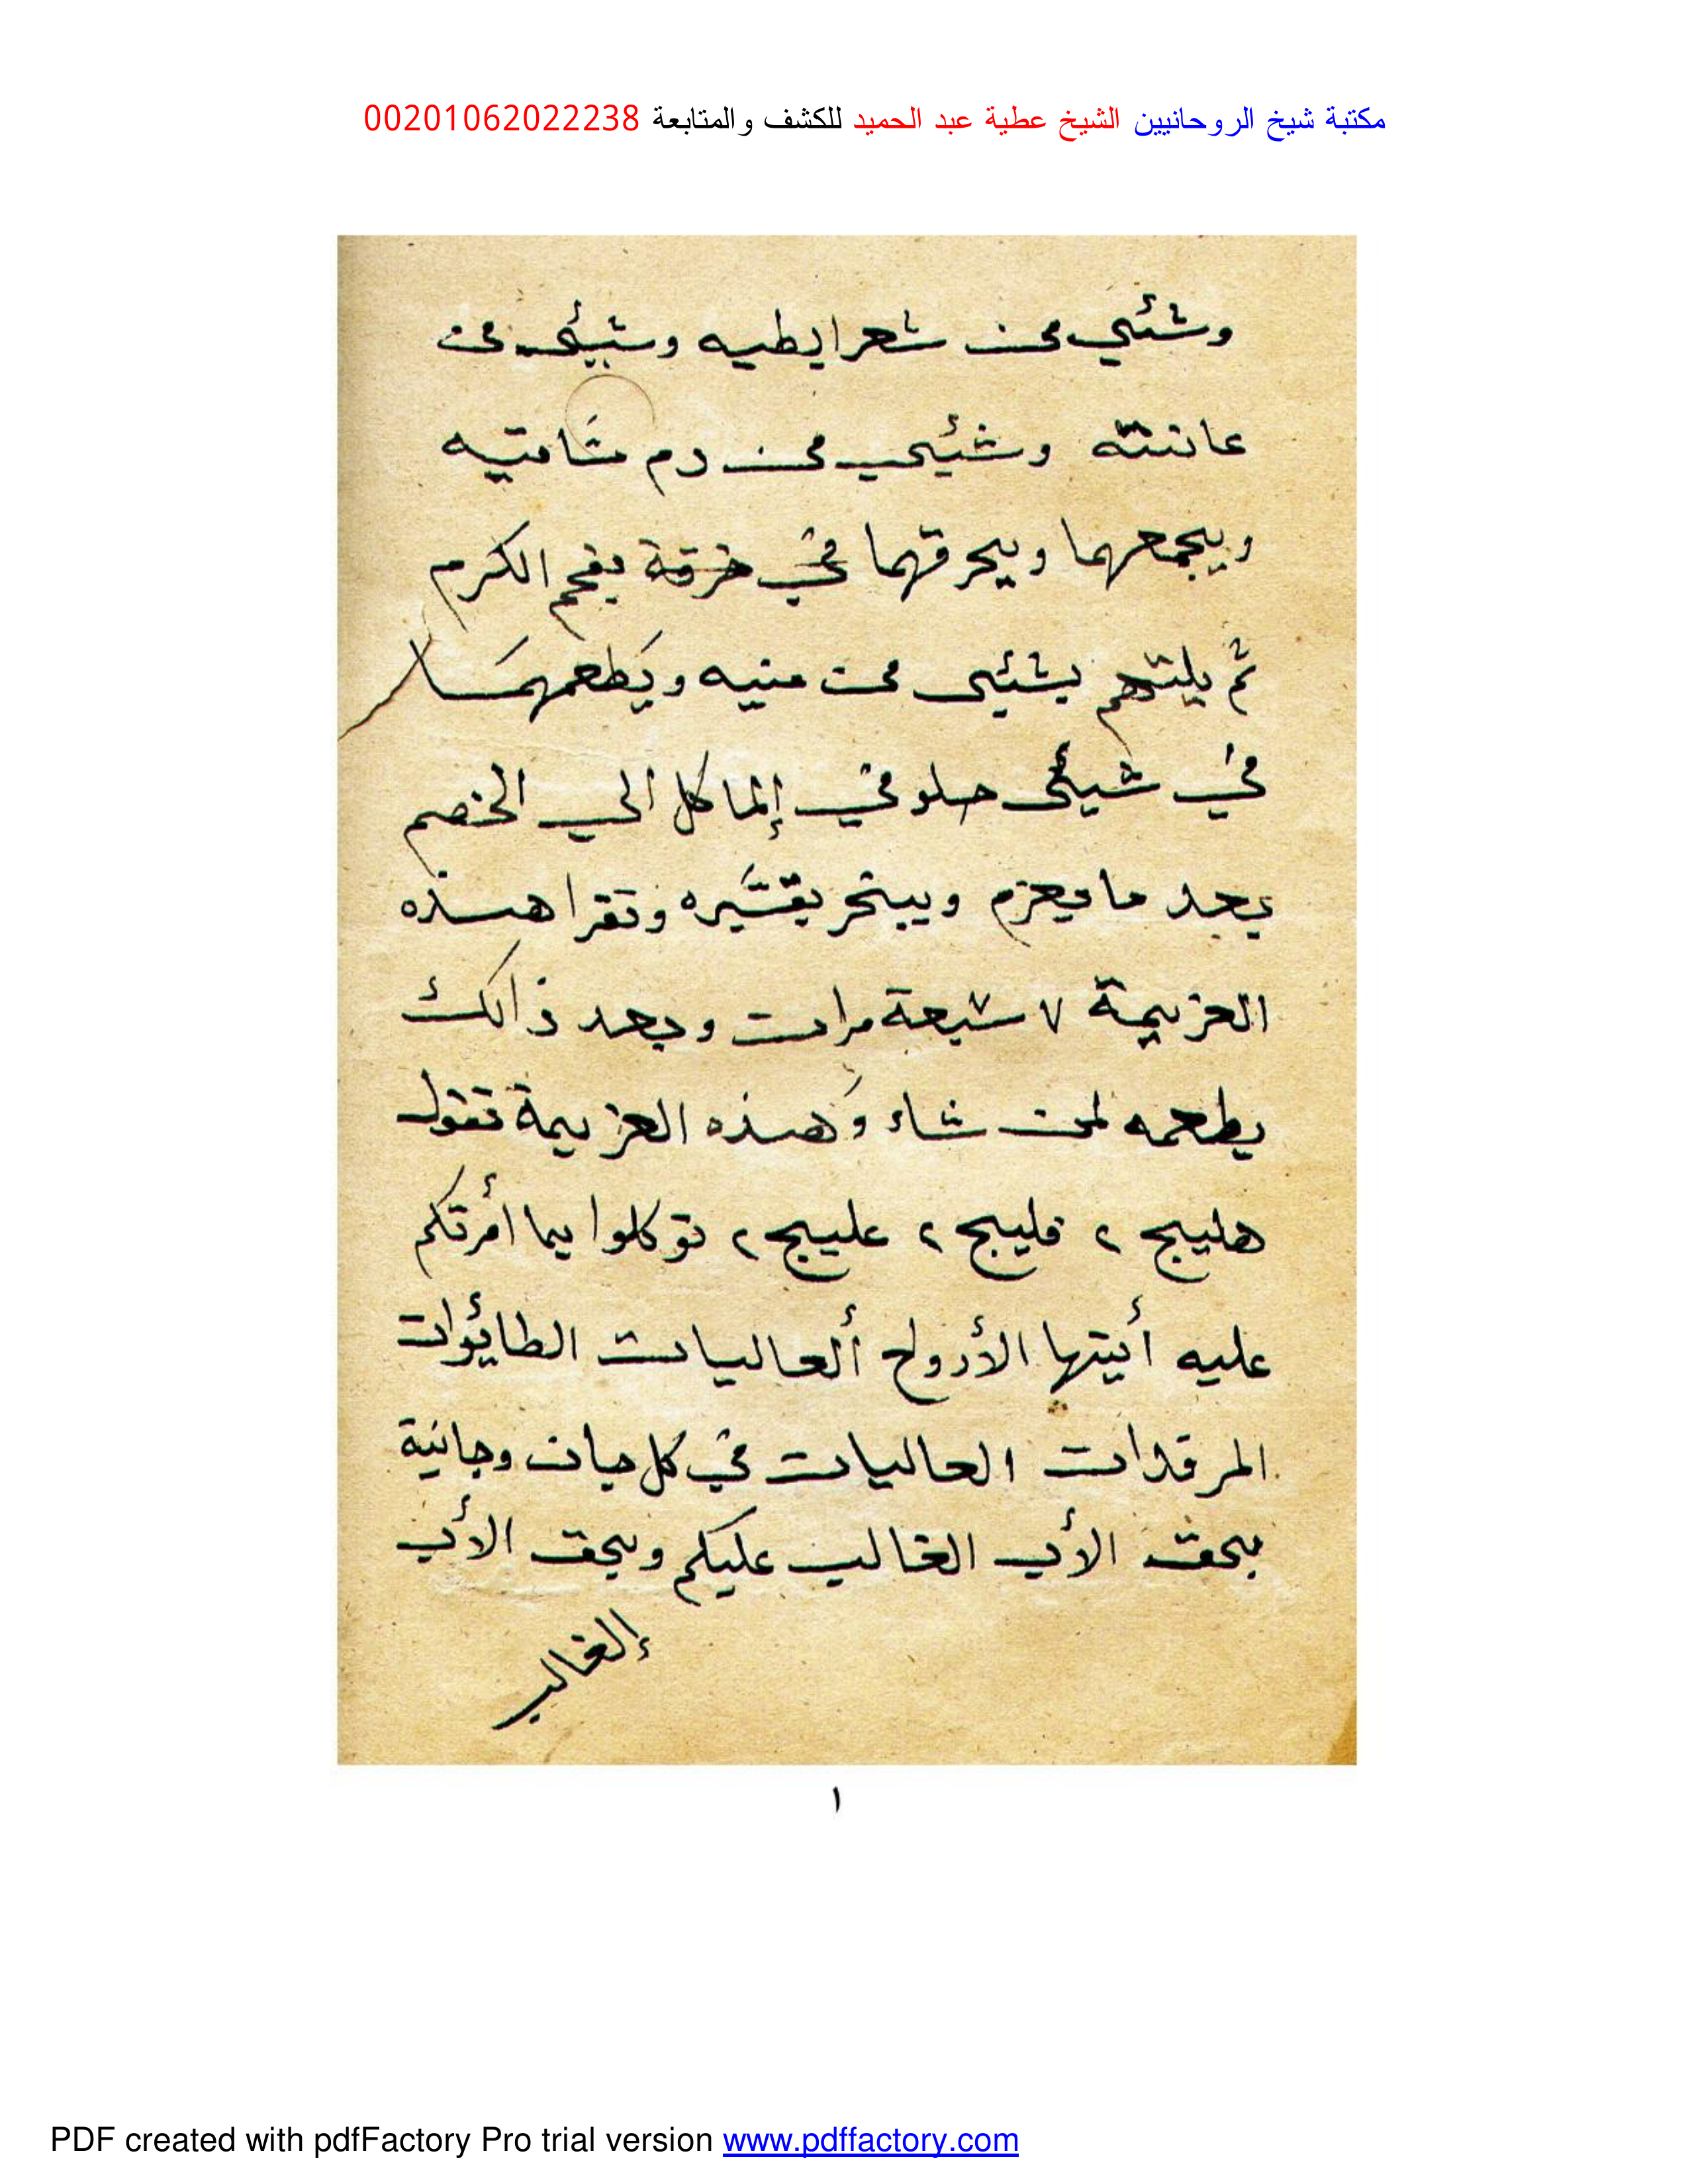 مكتبة شيخ الروحانيين الشيخ عطية عبد الحميد للكشف والمتابعة 00201062022238
وشئي من شعر ايطيه وشيئى من
عانته وشئيي من دم شامتيه
ويجمعهما ويحرقهما في خرقة بفحم الكرم
ثم يلتهم بشئيى من منيه ويطعمهما
في شيئى حلو في إلماكل ألي الخصم
بعد ما يعزم ويبخر بقشيره وتقرا هذه
العزيمة ٧ سبعة مرات وبعد ذالك
يطعمه لمن شاء وهذه العزيمة تقول
هليج ٢ فليج ٢ عليج ٢ توكلوا بما أمرتكم
عليه أيتها الأرواح ألعاليات الطائوات
المرقدات العاليات في كل جان وجانية
بحق الأب الغالب عليكم وبحق الأب
إلغالب
١
PDF created with pdfFactory Pro trial version www.pdffactory.com